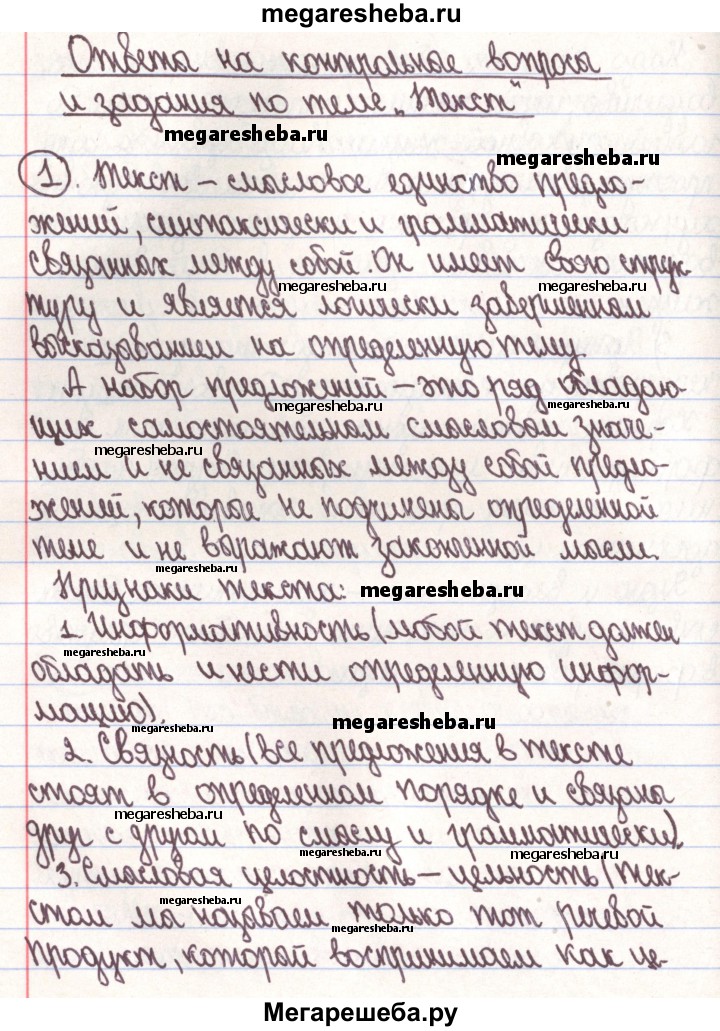 megaresheba.ru
Ответы на контрольные вопросы
и задания по теме „Текст"
megaresheba.ru
megaresheba.ru
1. Текст – смысловое единство предло-
жений, синтаксически и грамматически
связанных между собой. Он имеет свою струк-
megaresheba.ru megaresheba.ru
туру и является логически завершенным
высказыванием на определенную тему.
А набор предложений – это ряд обладаю-
megaresheba.ru megaresheba.ru
щих самостоятельным смысловым значе-
megaresheba.ru
нием и не связанных между собой предло-
жений, которые не подчинены определенной
теме и не выражают законченной мысли.
megaresheba.ru
Признаки текста: megaresheba.ru
1. Информативность (любой текст должен
megaresheba.ru
обладать и нести определенную инфор-
мацию).
megaresheba.ru megaresheba.ru
2. Связность (все предложения в тексте
стоят в определенном порядке и связаны
megaresheba.ru
друг с другом по смыслу и грамматически).
megaresheba.ru megaresheba.ru
3. Смысловая целостность – цельность (тек-
megaresheba.ru
стом мы называем только тот речевой
megaresheba.ru
продукт, который воспринимаем как це-
Мегарешеба.ру